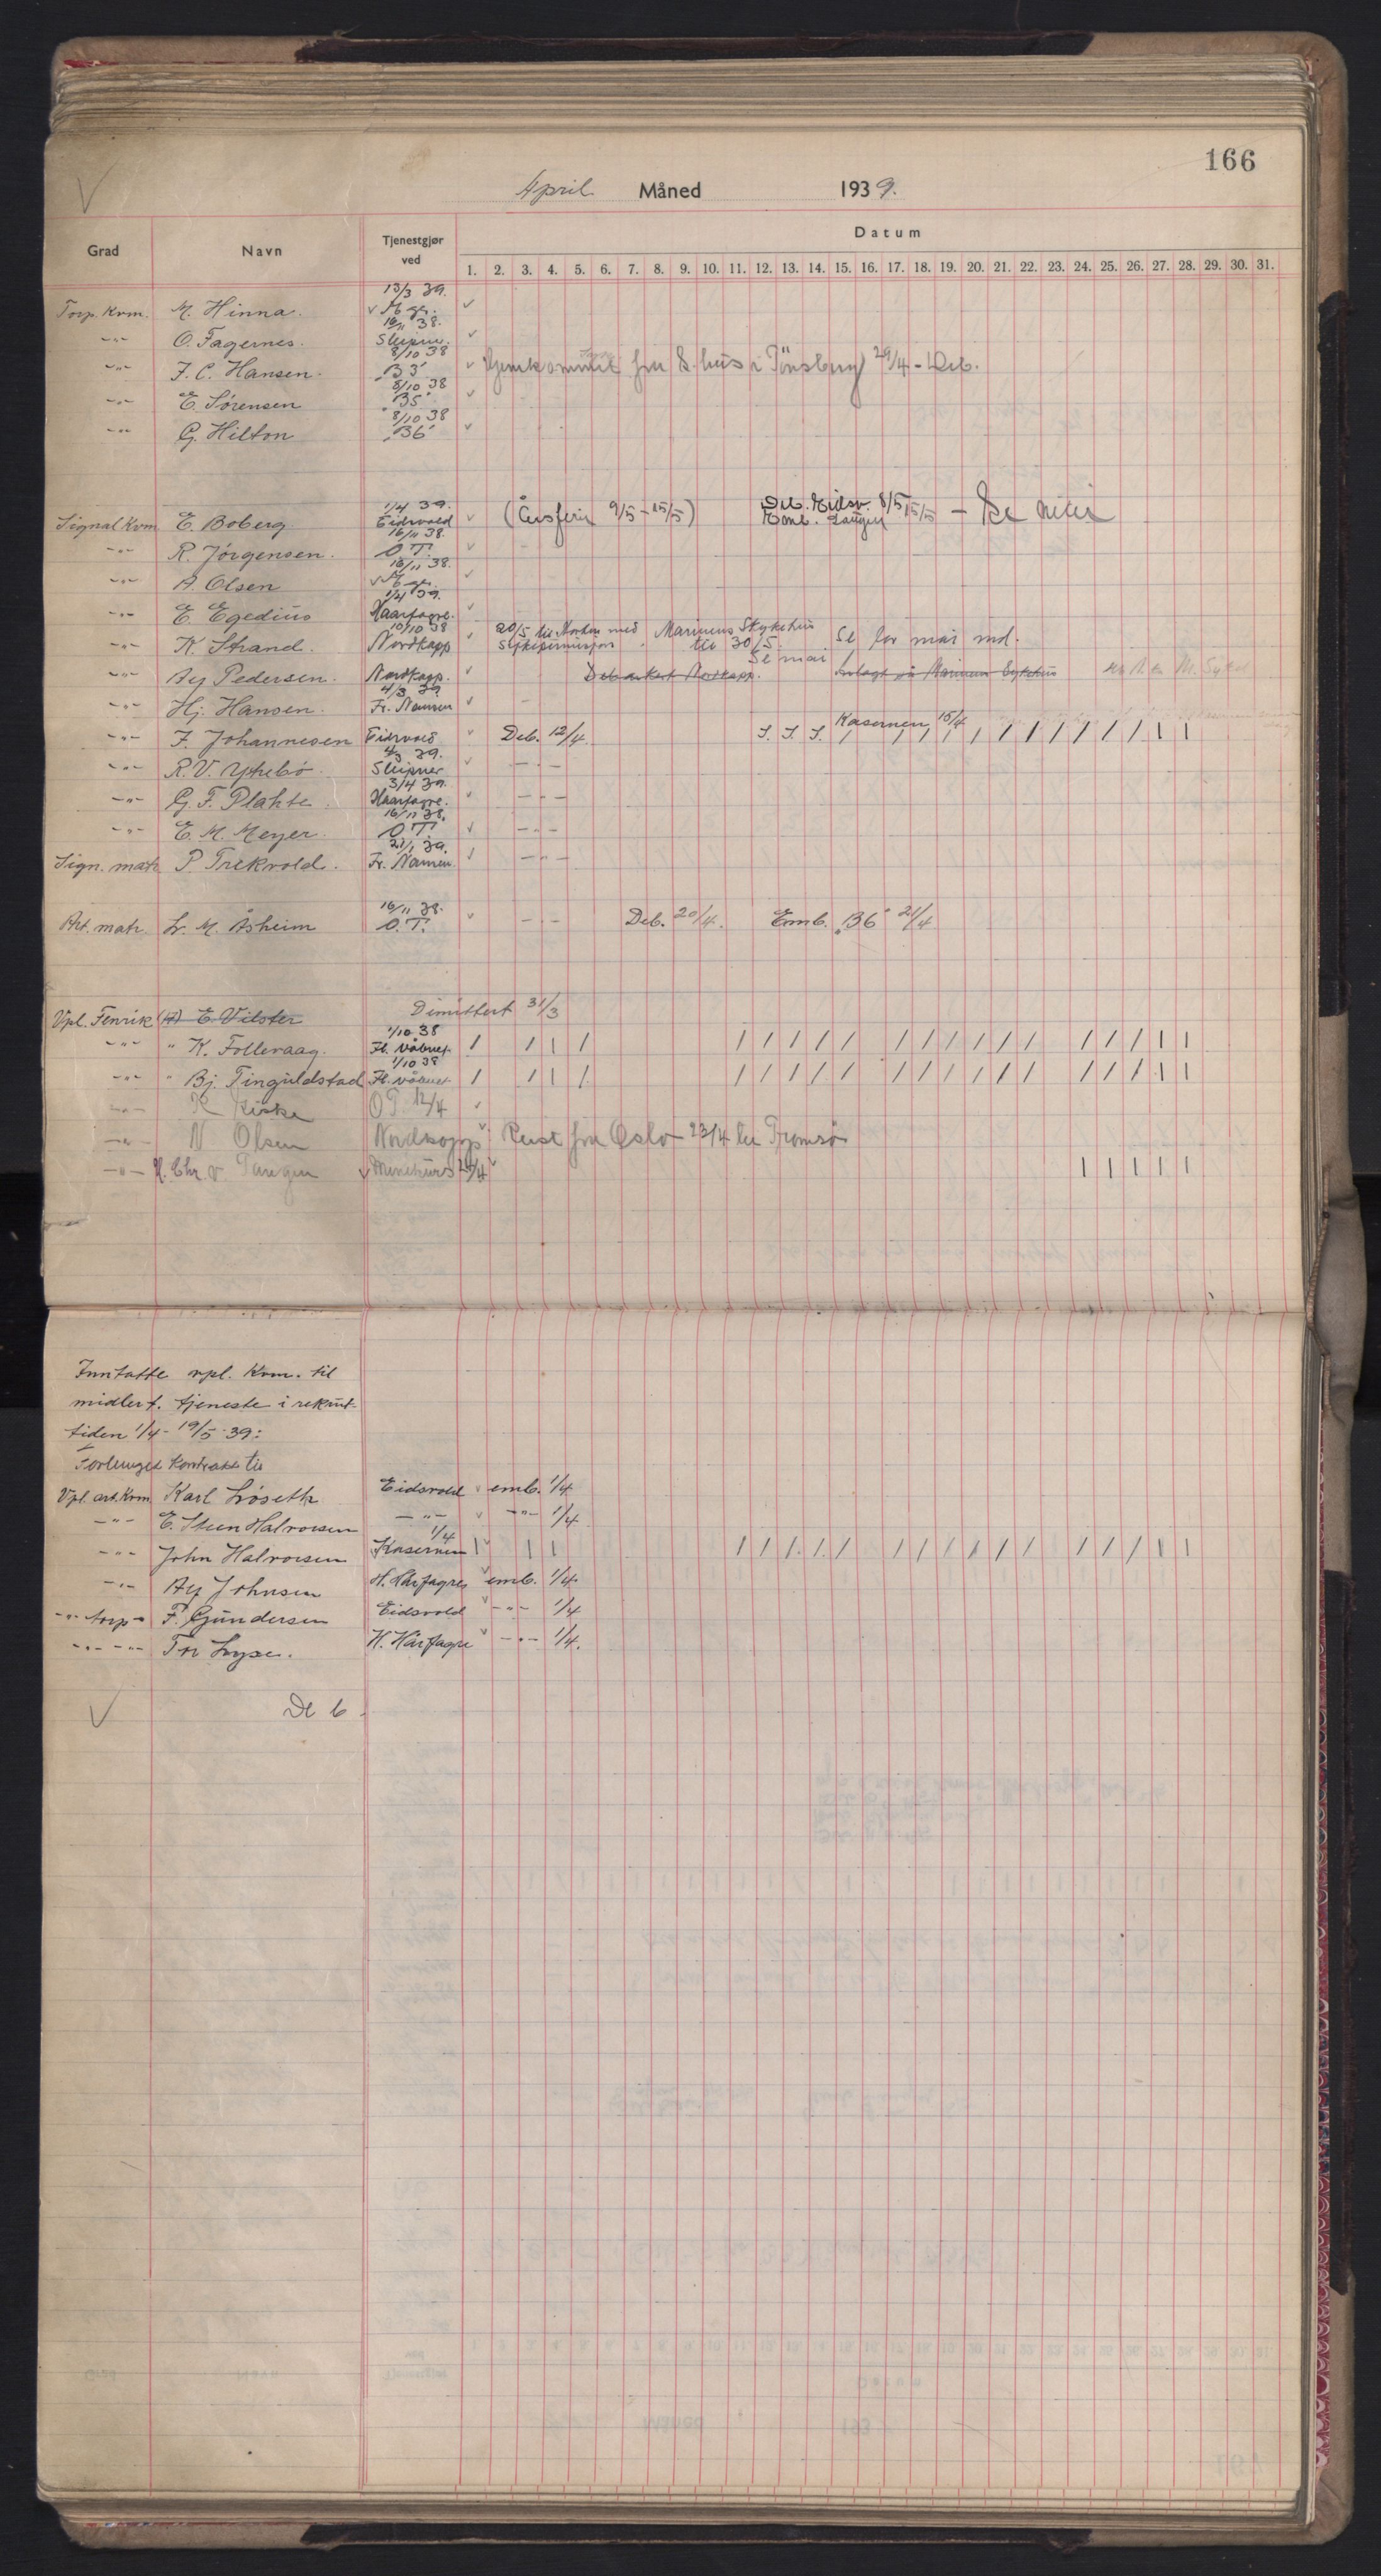 166
April Måned 1939.
Grad Navn Tjenestgjør ved Datum
1. 2. 3. 4. 5. 6. 7. 8. 9. 10. 11. 12. 13. 14. 15. 16. 17. 18. 19. 20. 21. 22. 23. 24. 25. 26. 27. 28. 29. 30. 31.
Torp. Kvm. M. Hinna. 13/3 39.
-"- O. Fagernes. 16/11 38. Sleipner.
-"- J. C. Hansen. 8/10 38 "B3" Hjemkommet fra S.hus i Tönsberg 29/4 - Deb.
-"- E. Sörensen 8/10 38 "B5"
-"- G. Hilton 8/10 38 "B6"
Signal Kvm E. Boberg 1/4 39. Eidsvold (Årsferie 9/5 - 15/5) Deb. Eidsv. 8/5
Emb. 15/5 - Se mai
-"- R. Jörgensen. 16/11 38. O.T.
-"- A. Olsen 16/11 38.
-"- E. Egedius 1/4 39. Haarfagre.
-"- K. Strand. 10/10 38 Nordkapp 20/5 til Horten med Marinens Sykehus
sykepermisjon til 30/5. Se for mai md.
-"- Ay Pedersen. Nordkapp. Debarkert Nordkapp. Se mai Innlagt på Marinens Sykehus
-"- Hj. Hansen. 4/3 39. Fr. Nansen
-"- F. Johannesen Eidsvold Deb. 12/4 S. S. S. Kasernen 15/4
-"- R. V. Ytrebö. 4/3 39. Sleipner -"-
-"- G. F. Plahte. 3/4 39. Haarfagre. -"-
-"- E. M. Meyer. 16/11 38. O.T. -"-
Sign. matr. P. Trekvold. 21/1 39. Fr. Nansen. -"-
Art. matr. L. M. Åsheim 16/11 38. O.T. -"- Deb. 20/4. Emb. "B6" 21/4
Vpl. Fenrik E. Vilster Dimittert 31/3
-"- " K. Folleraag. 1/10 38 Fl. våbnet
-"- " Bj. Tinguldstad 1/10 38 Fl. våbnet
-"- K Kiske O T. 12/4
-"- N Olsen Nordkapp Reist fra Oslo 23/4 til Tromsö
-"- H. Chr. v. Tangen Minekurs 24/4
Inntatte vpl. Kvm. til
midlert. tjeneste i rekrut-
tiden 1/4 - 19/5 - 39:
Forlenget Kontrakt til
Vpl. art. Kvm Karl Löseth Eidsvold emb. 1/4
-"- E. Steen Halvorsen -"- -"- 1/4
-"- John Halvorsen 1/4 Kasernen
-"- Ay Johnsen H. Hårfagres emb. 1/4
-"- torp - F. Gundersen Eidsvold -"- 1/4
-"- -"- Tr. Lyse. H. Hårfagre -"- 1/4.
De 6